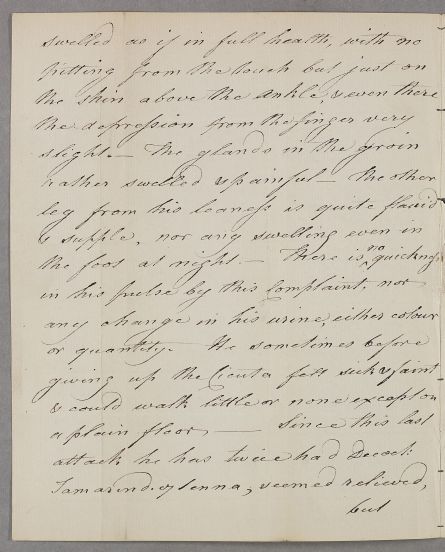 swelled as if in full health, with no
pitting from the touch but just on
the shin above the Ankle, & even there
the depression from the finger very
slight. — The glands in the groin
rather swelled & painful — the other
leg from his leaness is quite flaccid
& supple, nor any swelling even in
the foot at night. — There is no quickness
in his pulse by this Complaint, nor
any change in his urine, either colour
or quantity. — He sometimes before
giving up the Cicuta felt sick & faint
& could walk little or none except on
a plain floor, — Since this last
attack he has twice had Decoct:
Tamarind. & Senna, & seemed relieved,
but